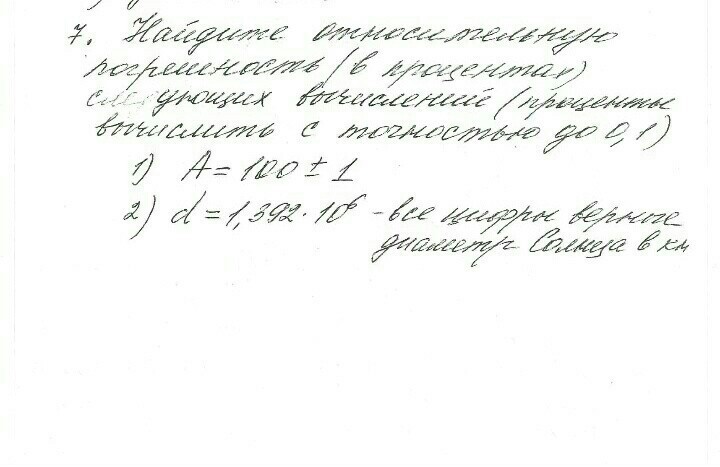 7. Найдите относительную
погрешность (в процентах)
следующих вычислений (проценты
вычислить с точностью до 0,1)
1) A = 100 ± 1
2) d = 1,392 · 10⁶ - все цифры верные
диаметр Солнца в км